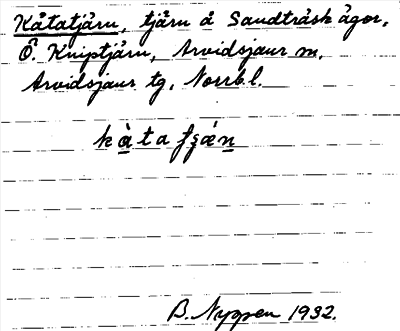 Kåtatjärn, tjärn å Sandträsk ägor,
Ö. Kniptjärn, Arvidsjaur sn.
Arvidsjaur tg. Norrb.l.
B. Nygren 1932.